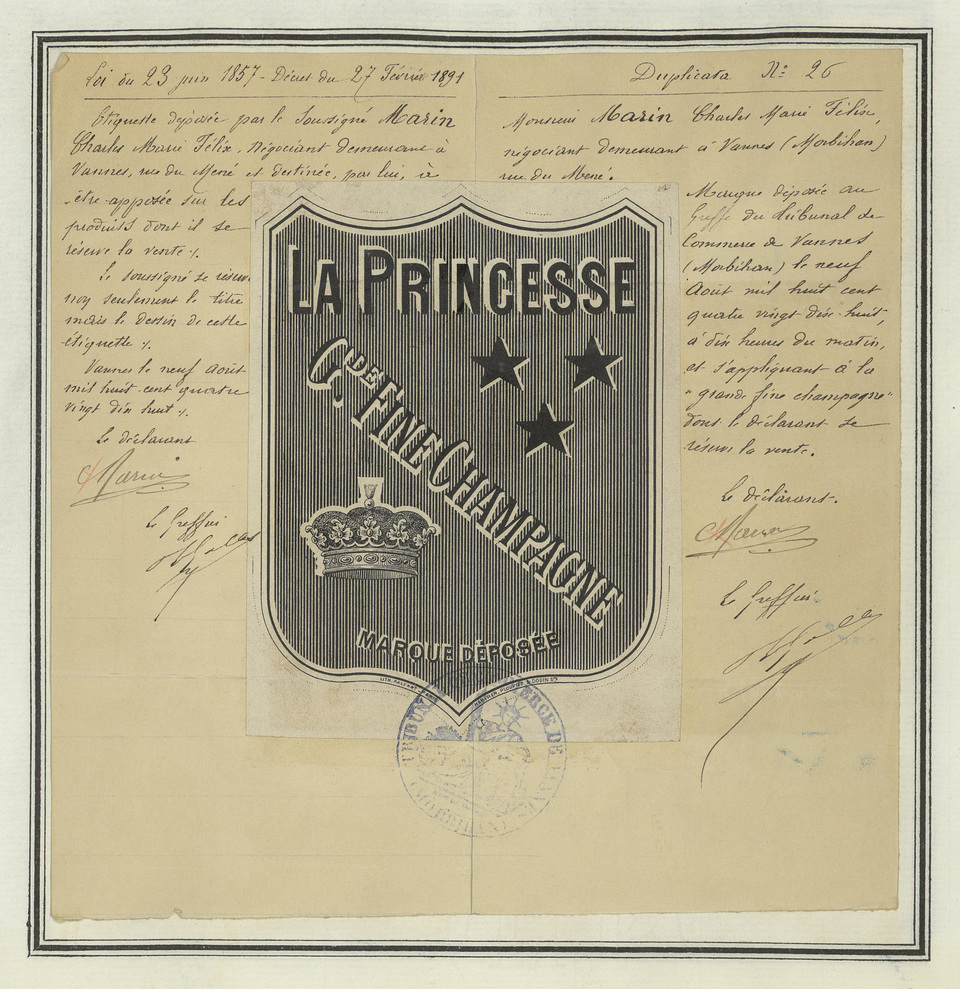 Loi du 23 juin 1857 - Décret du 27 Février 1891
Etiquette déposée par le Soussigné Marin
Charles Marie Félix, négociant demeurant à
Vannes, rue du Mené et destinée, par lui, à
être apposée sur les
produits dont il se
réserve la vente ./.
Le soussigné se réserve
non seulement le titre
mais le dessin de cette
étiquette ./.
Vannes le neuf Août
mil huit cent quatre
vingt dix huit ./.
Le déclarant
CMarin
Le Greffier
Duplicata N° 26
Monsieur Marin Charles Marie Félix,
négociant demeurant à Vannes (Morbihan)
rue du Mené.
Marque déposée au
Greffe du Tribunal de
Commerce de Vannes
(Morbihan) le neuf
Août mil huit cent
quatre vingt dix-huit,
à dix heures du matin,
et s'appliquant à la
"grande fine champagne"
dont le déclarant se
réserve la vente.
Le déclarant.
CMarin
Le Greffier
LA PRINCESSE
Gde FINE CHAMPAGNE
MARQUE DÉPOSÉE
TRIBUNAL DE COMMERCE DE VANNES
(MORBIHAN)